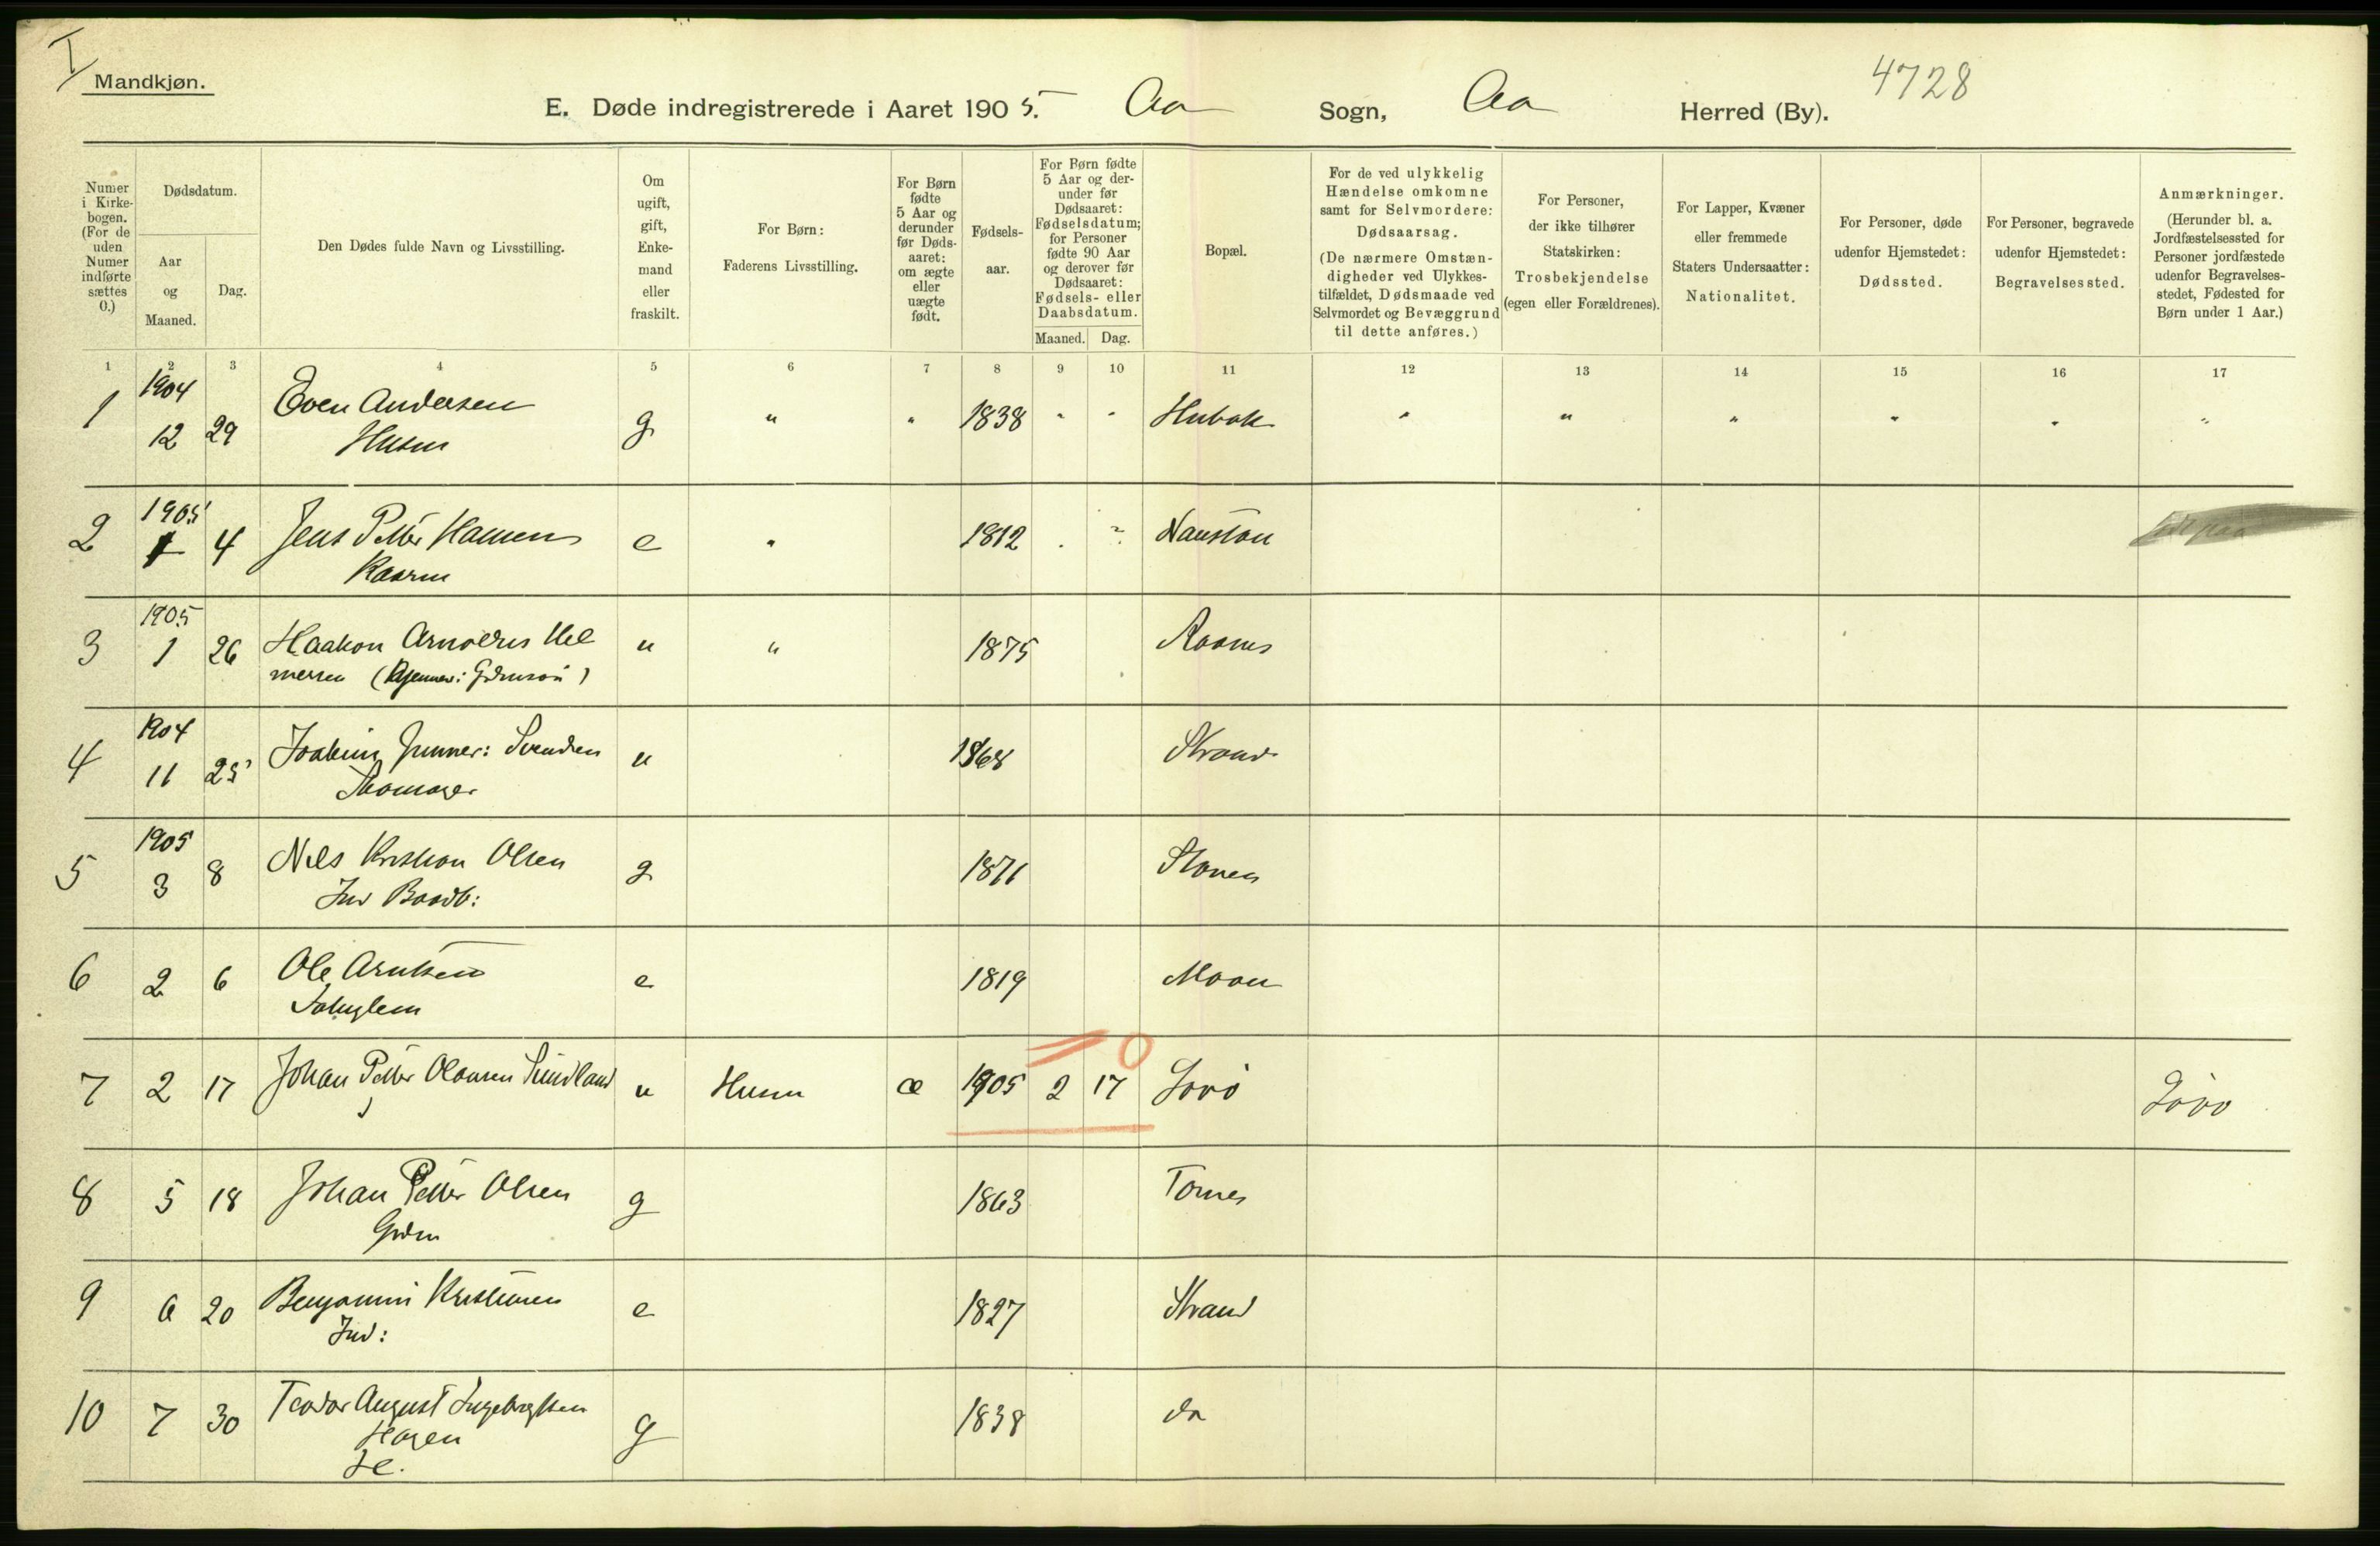 I
Mandkjøn.
4728
E. Døde indregistrerede i Aaret 1905. Aa Sogn, Aa Herred (By).
Numer i Kirke-bogen. (For de uden Numer indførte sættes 0.)
Dødsdatum.
Aar og Maaned.
Dag.
Den Dødes fulde Navn og Livsstilling.
Om ugift, gift, Enke-mand eller fraskilt.
For Børn:
Faderens Livsstilling.
For Børn fødte 5 Aar og derunder før Døds-aaret: om ægte eller uægte født.
Fødsels-aar.
For Børn fødte 5 Aar og der-under før Dødsaaret: Fødselsdatum; for Personer fødte 90 Aar og derover før Dødsaaret: Fødsels- eller Daabsdatum.
Maaned.
Dag.
Bopæl.
For de ved ulykkelig Hændelse omkomne samt for Selvmordere: Dødsaarsag.
(De nærmere Omstæn-digheder ved Ulykkes-tilfældet, Dødsmaade ved Selvmordet og Bevæggrund til dette anføres.)
For Personer, der ikke tilhører Statskirken: Trosbekjendelse (egen eller Forældrenes).
For Lapper, Kvæner eller fremmede Staters Undersaatter: Nationalitet.
For Personer, døde udenfor Hjemstedet: Dødssted.
For Personer, begravede udenfor Hjemstedet: Begravelsessted.
Anmærkninger.
(Herunder bl. a. Jordfæstelsessted for Personer jordfæstede udenfor Begravelses-stedet, Fødested for Børn under 1 Aar.)
1 2 3 4 5 6 7 8 9 10 11 12 13 14 15 16 17
1 1904 12 29 Even Andersen g " " 1838 " " " " " " " "
Husm
2 1905 1 4 Jens Petter Hansen e " 1812 Naustan
Kaarm
3 1905 1 26 Haakon Arnoldus Hel u " 1875
mersen
4 1904 11 25 Joakim Svendsen u 1868 Strand
5 1905 3 8 Nils Kristian Olsen g 1871
Ind
6 2 6 Ole Arntsen e 1819
7 2 17 Johan Petter Olausen Sundland u Husm æ 1905 2 17 0
8 5 18 Johan Petter Olsen g 1863 Tornes
Grdm
9 6 20 Benjamin Kristiansen e 1827 Strand
Ind:
10 7 30 Teodor August Ingebrigtsen g 1838 do
Hagen